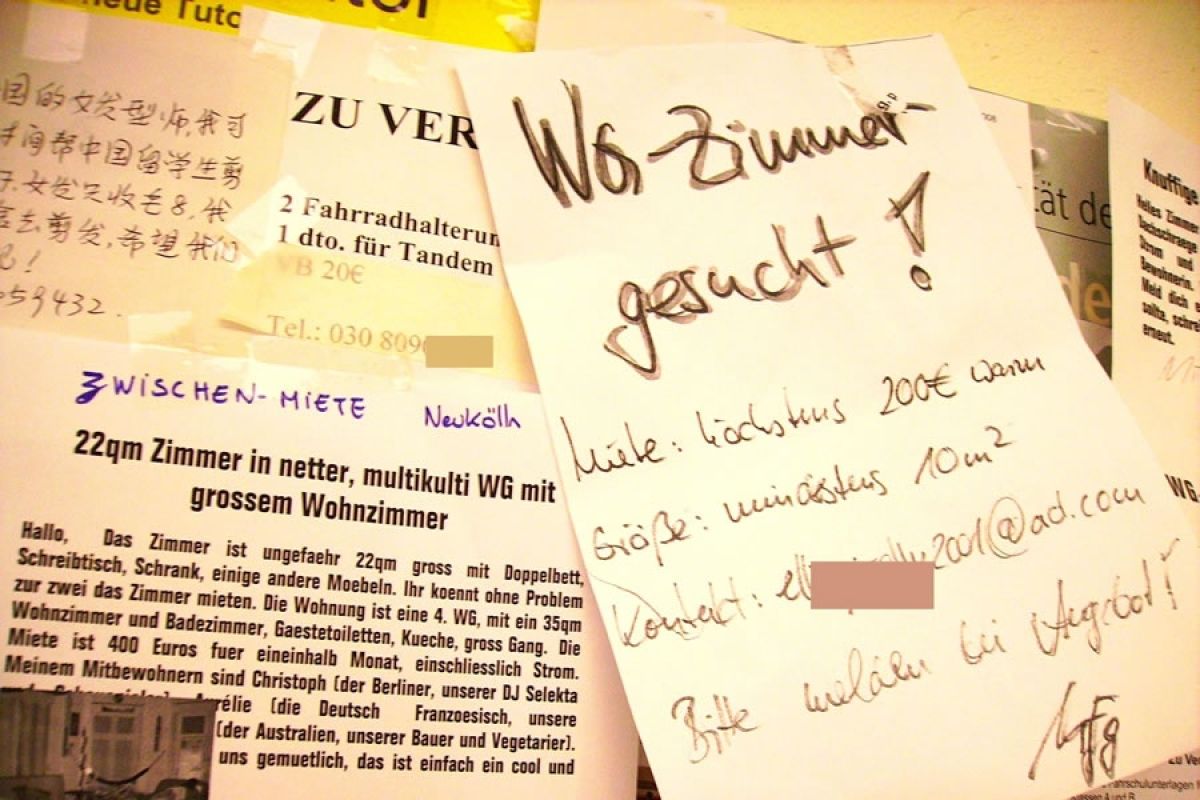 neue Tuto
国的女发型师,我可
时间帮中国留学生剪
女发只收毛8,我
去剪发,希望我们
吧!
059432.
ZU VER
2 Fahrradhalterun
1 dto. für Tandem
VB 20€
Tel.: 030 809
ZWISCHEN-MIETE Neukölln
22qm Zimmer in netter, multikulti WG mit
grossem Wohnzimmer
Hallo, Das Zimmer ist ungefaehr 22qm gross mit Doppelbett,
Schreibtisch, Schrank, einige andere Moebeln. Ihr koennt ohne Problem
zur zwei das Zimmer mieten. Die Wohnung ist eine 4. WG, mit ein 35qm
Wohnzimmer und Badezimmer, Gaestetoiletten, Kueche, gross Gang. Die
Miete ist 400 Euros fuer eineinhalb Monat, einschliesslich Strom.
Meinem Mitbewohnern sind Christoph (der Berliner, unserer DJ Selekta
und Schauspieler), Aurélie (die Deutsch Franzoesisch, unsere
(der Australien, unserer Bauer und Vegetarier).
uns gemuetlich, das ist einfach ein cool und
WG-Zimmer
gesucht!
Miete: höchstens 200€ warm
Größe: mindestens 10m²
Kontakt: 2001@aol.com
Bitte melden bei Angebot!
tät de
de
Knuffige
Helles Zimmer
Dachschraege
Strom und
Bewohnerin.
Meld dich
sollte, schrei
erneut.
WG
zu Ve
Fahrschulunterlagen
Klassen A und B